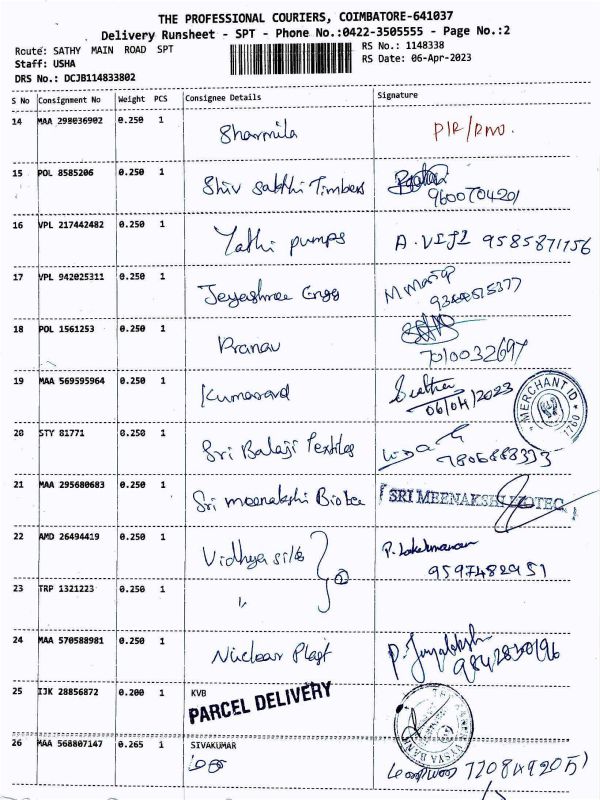 THE PROFESSIONAL COURIERS, COIMBATORE-641037
Delivery Runsheet - SPT - Phone No.:0422-3505555 - Page No.:2
Route: SATHY MAIN ROAD SPT
RS No.: 1148338
Staff: USHA
RS Date: 06-Apr-2023
DRS No.: DCJB114833802
S No Consignment No Weight PCS Consignee Details Signature
14 MAA 298036902 0.250 1 Sharmila
15 POL 8585206 0.250 1 Shiv Sakthi Timbers
9600704201
16 VPL 217442482 0.250 1 Yathi pumps A. VIJI 9585871756
17 VPL 942025311 0.250 1 Jeyashree Engg
18 POL 1561253 0.250 1 Pranav
7010032697
19 MAA 569595964 0.250 1
06/04/2023
MERCHANT ID
1760
20 STY 81771 0.250 1 Sri Balaji Textiles
7806883335
21 MAA 295680683 0.250 1 Sri meenakshi Biotec SRI MEENAKSHI BIOTEC
22 AMD 26494419 0.250 1 Vidhya silks P. Lakshmanan
9597482951
23 TRP 1321223 0.250 1 "
24 MAA 570588981 0.250 1 Nuclear Plast
25 IJK 28856872 0.200 1 KVB
PARCEL DELIVERY
VYSYA BANK
26 MAA 568807147 0.265 1 SIVAKUMAR